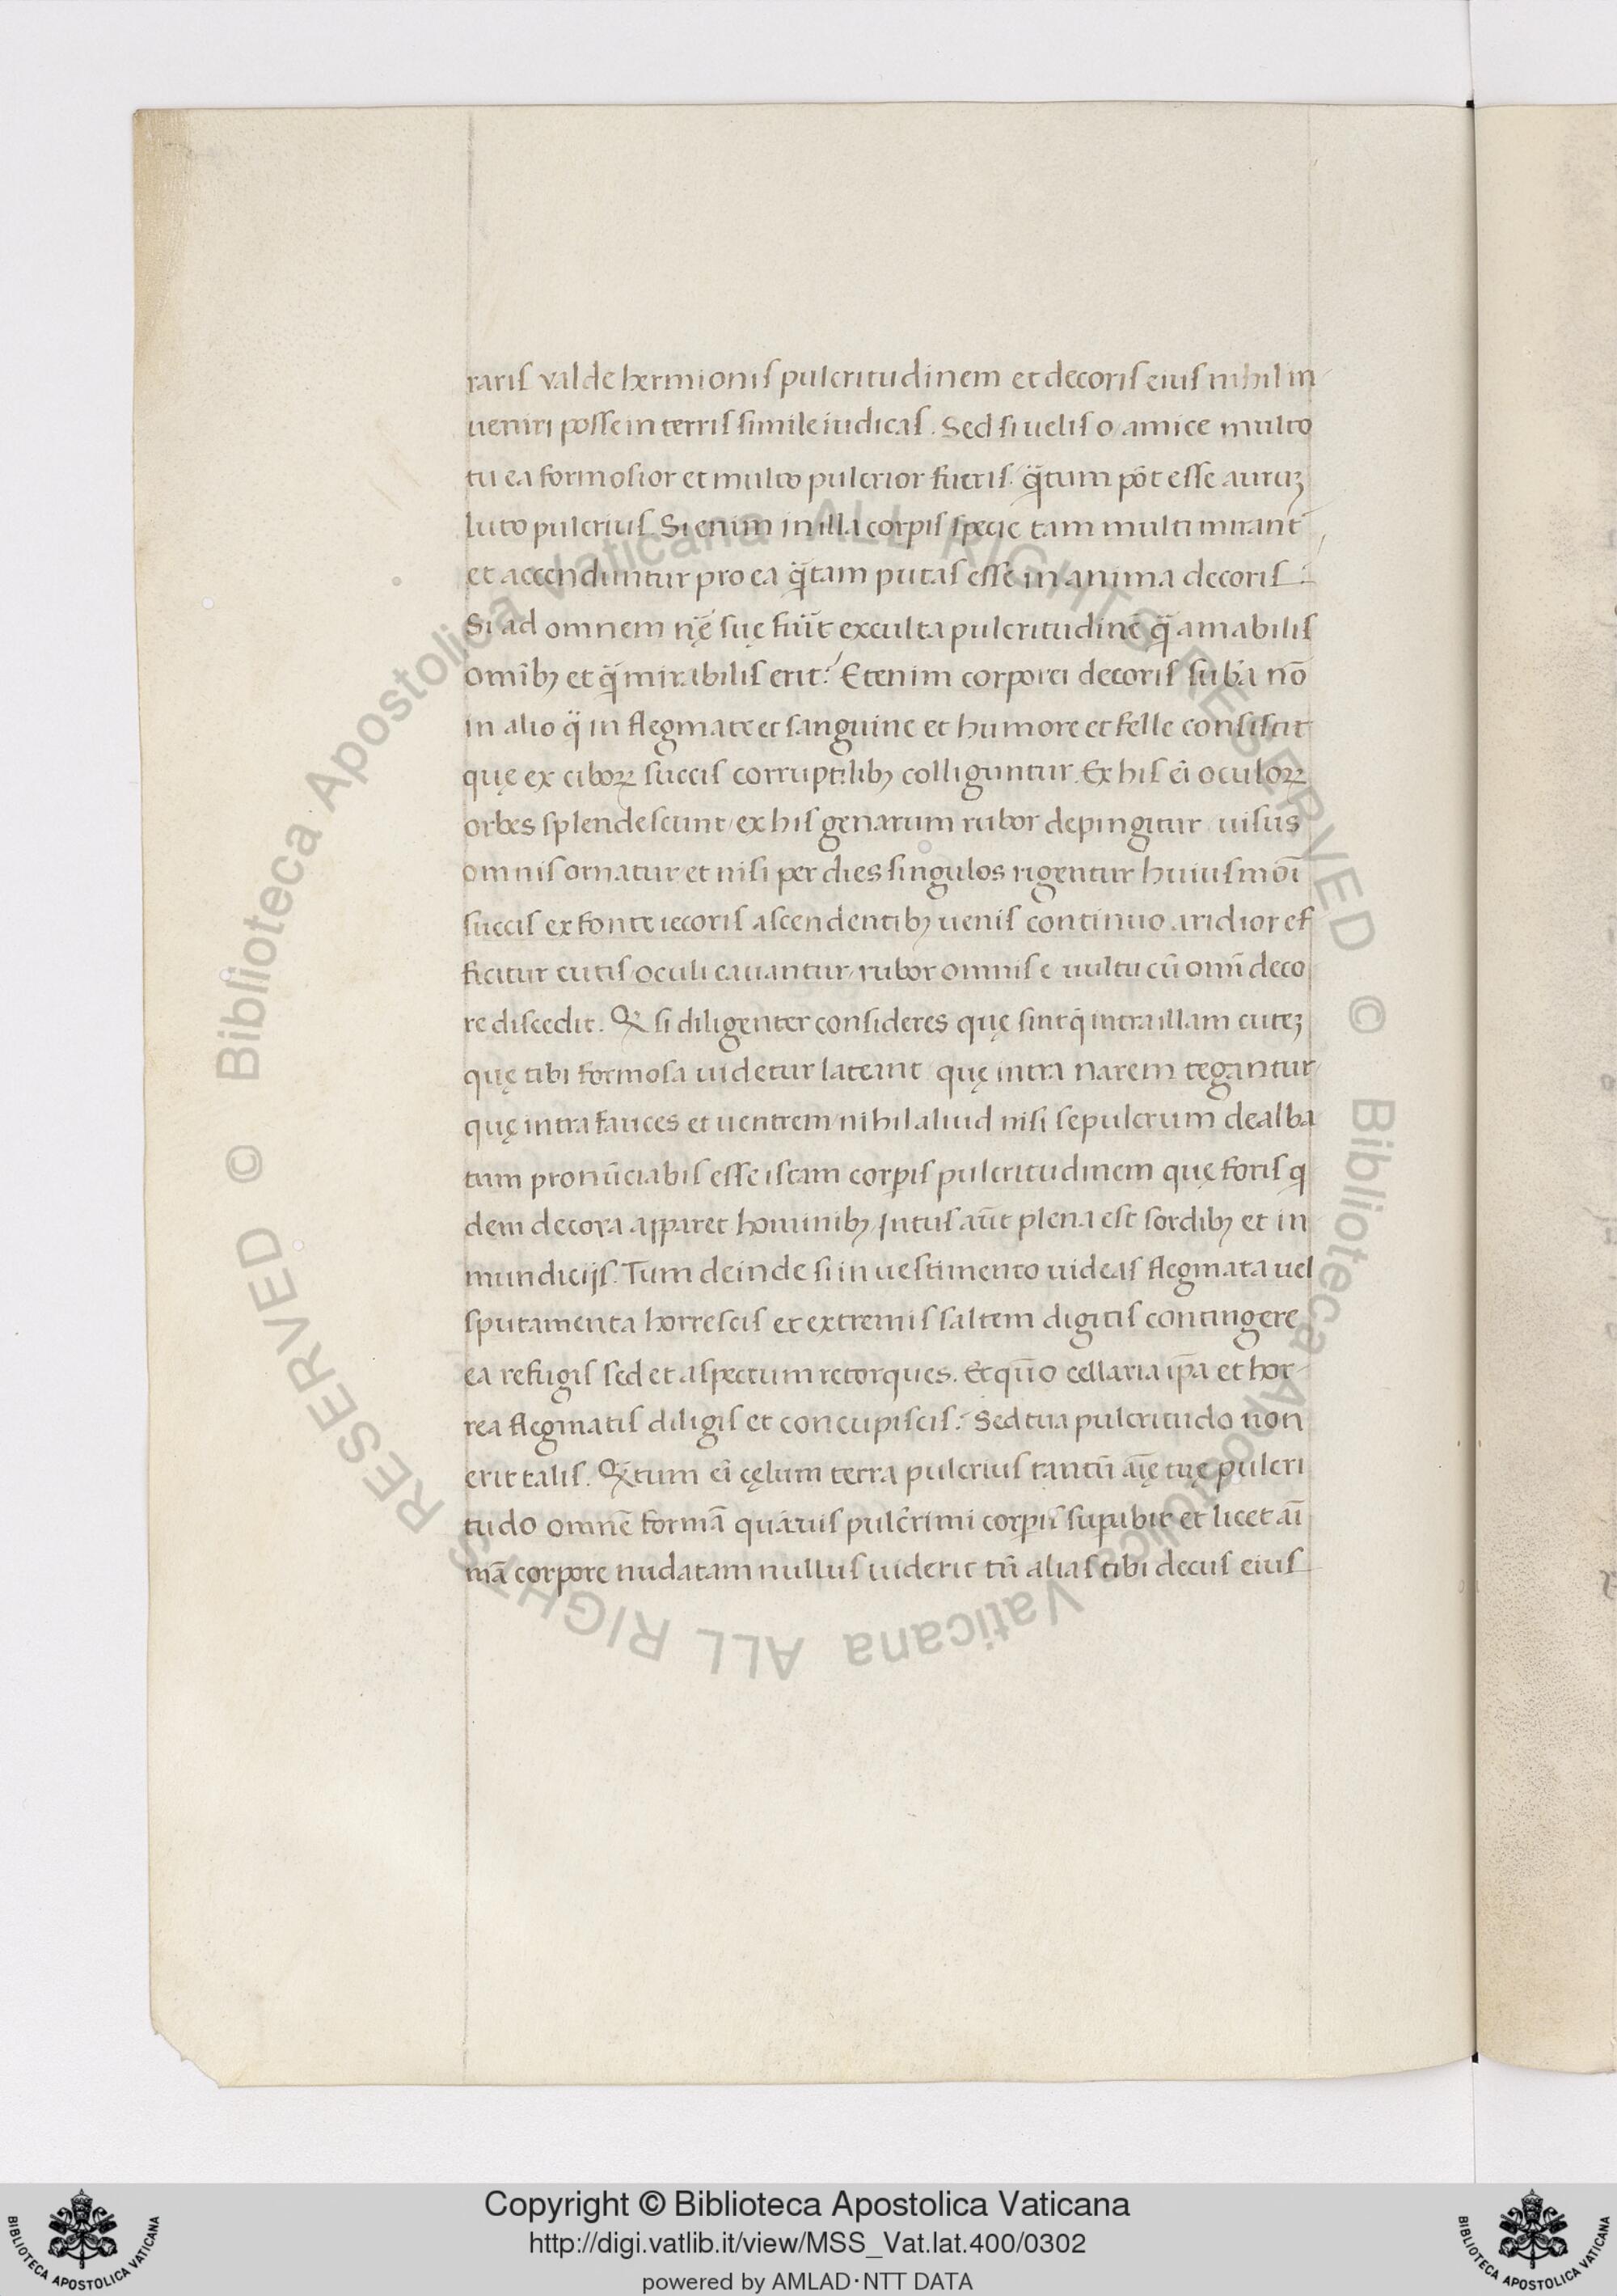 raris valde hermionis pulcritudinem et decoris eius nihil in-
ueniri posse in terris simile iudicas. Sed si uelis o amice multo
tu ea formosior et multo pulcrior fueris. q̃tum põt esse auruꝫ
luto pulcrius. Si enim in illa corpis specie tam multi mirant̃
et accenduntur pro ea q̃tam putas esse in anima decoris:
Si ad omnem nr̃ę suę fuit̃ exculta pulcritudinẽ q̃ amabilis
omĩbꝫ et q̃ mirabilis erit? Etenim corporei decoris subã nõ
in alio q̃ in flegmate et sanguine et humore et felle consistit
quę ex ciboꝝ succis corruptilibꝫ colliguntur. Ex his eĩ oculoꝝ
orbes splendescunt/ ex his genarum rubor depingitur uisus
omnis ornatur et nisi per dies singulos rigentur huiusmõi
succis ex fonte iecoris ascendentibꝫ uenis continuo aridior ef
ficitur cutis/ oculi cauantur/ rubor omnis e uultu cũ omĩ deco
re discedit. Qđ si diligenter consideres quę sint q̃ intra illam cuteꝫ
quę tibi formosa uidetur lateant quę intra narem tegantur
quę intra fauces et uentrem/ nihil aliud nisi sepulcrum dealba
tum pronũciabis esse istam corpis pulcritudinem quę foris q
dem decora apparet hominibꝫ/ Intus aũt plena est sordibꝫ et in
mundicijs. Tum deinde si in uestimento uideas flegmata uel
sputamenta horrescis et extremis saltem digitis contingere
ea refugis sed et aspectum retorques. Et quõ cellaria ip̃a et hor-
rea flegmatis diligis et concupiscis? Sed tua pulcritudo non
erit talis. Q̃tum eĩ cęlum terra pulcrius tantũ aĩę tuę pulcri
tudo omnẽ formã quãuis pulcr̃imi corpis supabit et licet aĩ
mã corpore nudatam nullus uiderit tñ alias tibi decus eius
Copyright © Biblioteca Apostolica Vaticana
http://digi.vatlib.it/view/MSS_Vat.lat.400/0302
powered by AMLAD·NTT DATA
BIBLIOTECA APOSTOLICA VATICANA
BIBLIOTECA APOSTOLICA VATICANA
© Biblioteca Apostolica Vaticana ALL RIGHTS RESERVED
© Biblioteca Apostolica Vaticana ALL RIGHTS RESERVED